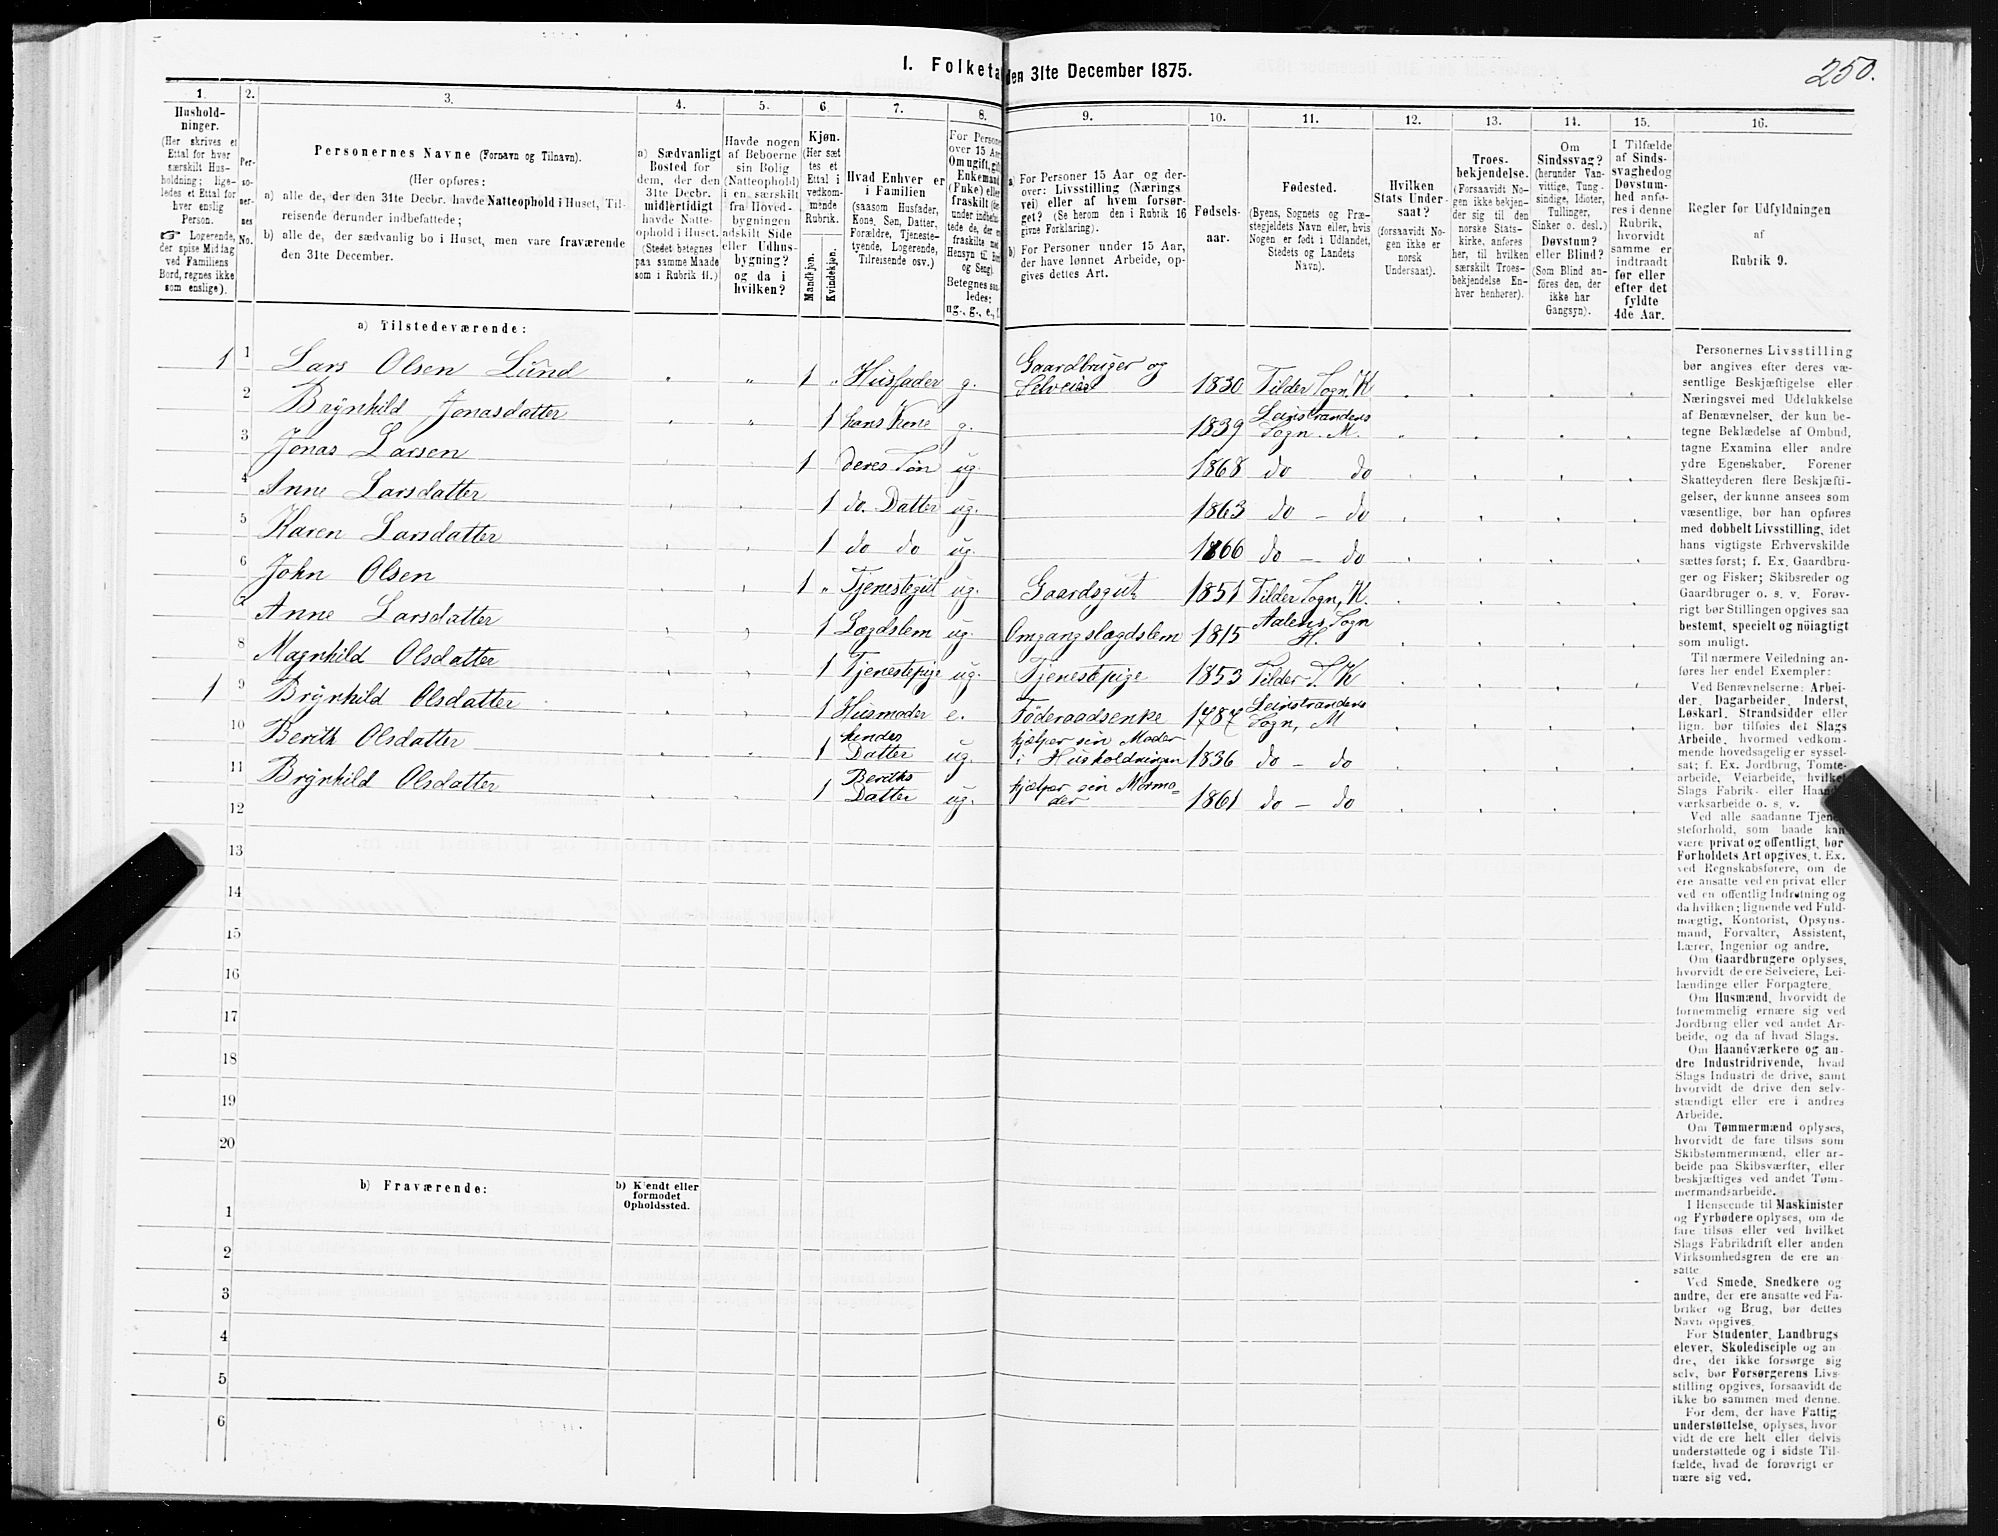 250.
I. Folketa den 31te December 1875.
1. 2. 3. 4. 5. 6. 7. 8. 9. 10. 11. 12. 13. 14. 15. 16.
Hushold-
ninger.
(Her skrives et
Ettal for hver
særskilt Hus-
holdning; lige-
ledes et Ettal for
hver enslig
Person.
☞ Logerende,
der spise Middag
ved Familiens
Bord, regnes ikke
som enslige).
Per-
so-
ner-
nes
No.
Personernes Navne (Fornavn og Tilnavn).
(Her opføres:
a) alle de, der den 31te Decbr. havde Natteophold i Huset, Til-
reisende derunder indbefattede;
b) alle de, der sædvanlig bo i Huset, men vare fraværende
den 31te December.
a) Sædvanligt
Bosted for
dem, der den
31te Decbr.
midlertidigt
havde Natte-
ophold i Huset.
(Stedet betegnes
paa samme Maade
som i Rubrik 11.)
Havde nogen
af Beboerne
sin Bolig
(Natteophold)
i en særskilt
fra Hoved-
bygningen
adskilt Side
eller Udhus-
bygning?
og da i
hvilken?
Kjøn.
(Her sæt
tes et
Ettal i
vedkom-
mende
Rubrik.
Mandkjøn.
Kvindekjøn.
Hvad Enhver er
i Familien
(saasom Husfader,
Kone, Søn, Datter,
Forældre, Tjeneste-
tyende, Logerende,
Tilreisende osv.)
For Persone
over 15 Aar
Om ugift, gift
Enkemand
(Enke) eller
fraskilt (de
under indbefat-
tede de, de er
fraskilte med
Hensyn til Bord
og Seng).
Betegnes saa-
ledes:
ug., g., e., f.
a) For Personer 15 Aar og der-
over: Livsstilling (Nærings
vei) eller af hvem forsør-
get? (Se herom den i Rubrik 16
givne Forklaring).
b) For Personer under 15 Aar,
der have lønnet Arbeide, op-
gives dettes Art.
Fødsels-
aar.
Fødested.
(Byens, Sognets og Præ-
stegjeldets Navn eller, hvis
Nogen er født i Udlandet,
Stedets og Landets
Navn).
Hvilken
Stats Under
saat?
(forsaavidt No-
gen ikke er
norsk
Undersaat).
Troes-
bekjendelse.
(Forsaavidt No-
gen ikke bekjen-
der sig til den
norske Stats-
kirke, anføres
her, til hvilken
særskilt Troes-
bekjendelse En-
hver henhører).
Om
Sindssvag?
(herunder Van-
vittige, Tung-
sindige, Idioter,
Tullinger,
Sinker o. desl.)
Døvstum?
eller Blind?
(Som Blind an-
føres den, der
ikke har
Gangsyn).
I Tilfælde
af Sinds-
svaghed og
Døvstum-
hed anfø-
res i denne
Rubrik,
hvorvidt
samme er
indtraadt
før eller
efter det
fyldte
4de Aar.
Regler før Udfyldningen
af
Rubrik 9.
a) Tilstedeværende:
1 1 Lars Olsen Lund 1 " Husfader g. Gaardbruger og Selveier 1830 Tilder Sogn, K
2 Brynhild Jonasdatter 1 hans Kone g. 1839 Leinstrandens Sogn. M.
3 Jonas Larsen 1 deres Søn ug. 1868 do do
4 Anne Larsdatter 1 do. Datter ug. 1863 do - do
5 Karen Larsdatter 1 do do ug. 1866 do - do
6 John Olsen 1 " Tjenestegut ug. Gaardsgut 1851 Tilder Sogn, K.
7 Anne Larsdatter 1 Lægdslem ug. Omgangslægdslem 1815 Aalens Sogn H.
8 Magnhild Olsdatter 1 Tjenestepige ug. Tjenestepige 1853 Tilder S. K
1 9 Brynhild Olsdatter 1 Husmoder e. Föderaadsenke 1787 Leinstrandens Sogn, M
10 Berith Olsdatter 1 hendes Datter ug. hjælper sin Moder i Husholdningen 1836 do - do
11 Brynhild Olsdatter 1 Beriths Datter ug. hjælper sin Mormo- der 1861 do - do
12
13
14
15
16
17
18
19
20
b) Fraværende:
b) Kjendt eller
formodet
Opholdssted.
1
2
3
4
5
6
Personernes Livsstilling
bør angives efter deres væ-
sentlige Beskjæftigelse eller
Næringsvei med Udelukkelse
af Benævnelser, der kun be-
tegne Beklædelse af Ombud,
tagne Examina eller andre
ydre Egenskaber. Forener
Skatteyderen flere Beskjæfti-
gelser, der kunne ansees som
væsentlige, bør han opføres
med dobbelt Livsstilling, idet
hans vigtigste Erhvervskilde
sættes først; f. Ex. Gaardbru-
ger og Fisker; Skibsreder og
Gaardbruger o. s. v. Forøv-
rigt bør Stillingen opgives saa
bestemt, specielt og nöiagtigt
som muligt.
Til nærmere Veiledning an-
føres her endel Exempler:
Ved Benævnelserne: Arbei-
der, Dagarbeider, Inderst,
Løskarl, Strandsidder eller
lign. bør tilføies det Slags
Arbeide, hvormed vedkom-
mende hovedsagelig er syssel-
sat; f. Ex. Jordbrug, Tomte-
arbeide, Veiarbeide, hvilket
Slags Fabrik- eller Haand-
værksarbeide o. s. v.
Ved alle saadanne Tjene-
steforhold, som baade kan
være privat og offentligt, bør
Forholdets Art opgives, f. Ex.
ved Regnskabsførere, om de
ere ansatte ved en privat eller
ved en offentlig Indretning og
da hvilken; lignende ved Fuld-
mægtig, Kontorist, Opsyns-
mand, Forvalter, Assistent,
Lærer, Ingeniør og andre.
Om Gaardbrugere oplyses,
hvorvidt de ere Selveiere, Lei-
lændinge eller Forpagtere.
Om Husmænd, hvorvidt de
fornemmelig ernære sig ved
Jordbrug eller ved andet Ar-
beide, og da af hvad Slags.
Om Haandværkere og an-
dre Industridrivende, hvad
Slags Industri de drive, samt
hvorvidt de drive den selv-
stændigt eller ere i andres
Arbeide.
Om Tømmermænd oplyses,
hvorvidt de fare tilsøs som
Skibstømmermænd, eller ar-
beide paa Skibsværfter, eller
beskjæftiges ved andet Tøm-
mermandsarbeide.
I Henseende til Maskinister
og Fyrbødere oplyses, om de
fare tilsøs eller ved hvilket
Slags Fabrikdrift eller anden
Virksomhedsgren de ere an-
satte
Ved Smede, Snedkere og
andre, der ere ansatte ved Fa-
briker og Brug, bør dettes
Navn opgives.
For Studenter, Landbrugs
elever, Skoledisciple og an
dre, der ikke forsørge sig
selv, bør Forsørgerens Livs-
stilling opgives, forsaavidt de
ikke bo sammen med denne.
For dem, der have Fattig
understøttelse, oplyses, hvor
vidt de ere helt eller delvis
understøttede og i sidste Til-
fælde, hvad de forøvrigt er
nære sig ved.